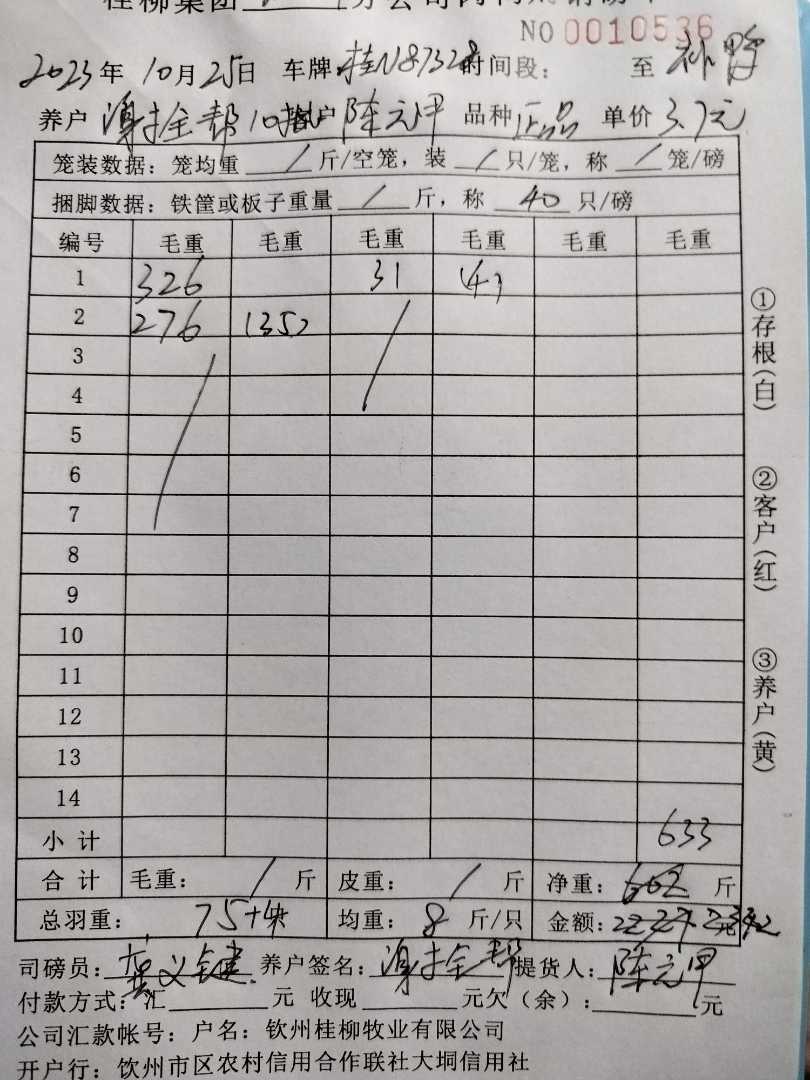 桂柳集团 分公司肉鸭
NO 0010536
2023年 10月25日 车牌:桂N87328 时间段: 至 补鸭
养户 谢全帮 客户 陈元甲 品种 正品 单价 3.7元
笼装数据:笼均重 / 斤/空笼,装 / 只/笼,称 / 笼/磅
捆脚数据:铁筐或板子重量 / 斤,称 40 只/磅
编号 毛重 毛重 毛重 毛重 毛重 毛重
1 326 31 (4)
2 276 (35)
3
4
5
6
7
8
9
10
11
12
13
14
小计 633
合计 毛重: / 斤 皮重: / 斤 净重: 斤
总羽重: 75+4 均重: 8 斤/只 金额:
司磅员: 义键 养户签名: 谢全帮 提货人: 陈元甲
付款方式:汇 元 收现 元欠(余): 元
公司汇款帐号:户名:钦州桂柳牧业有限公司
开户行:钦州市区农村信用合作联社大垌信用社
①存根(白)
②客户(红)
③养户(黄)